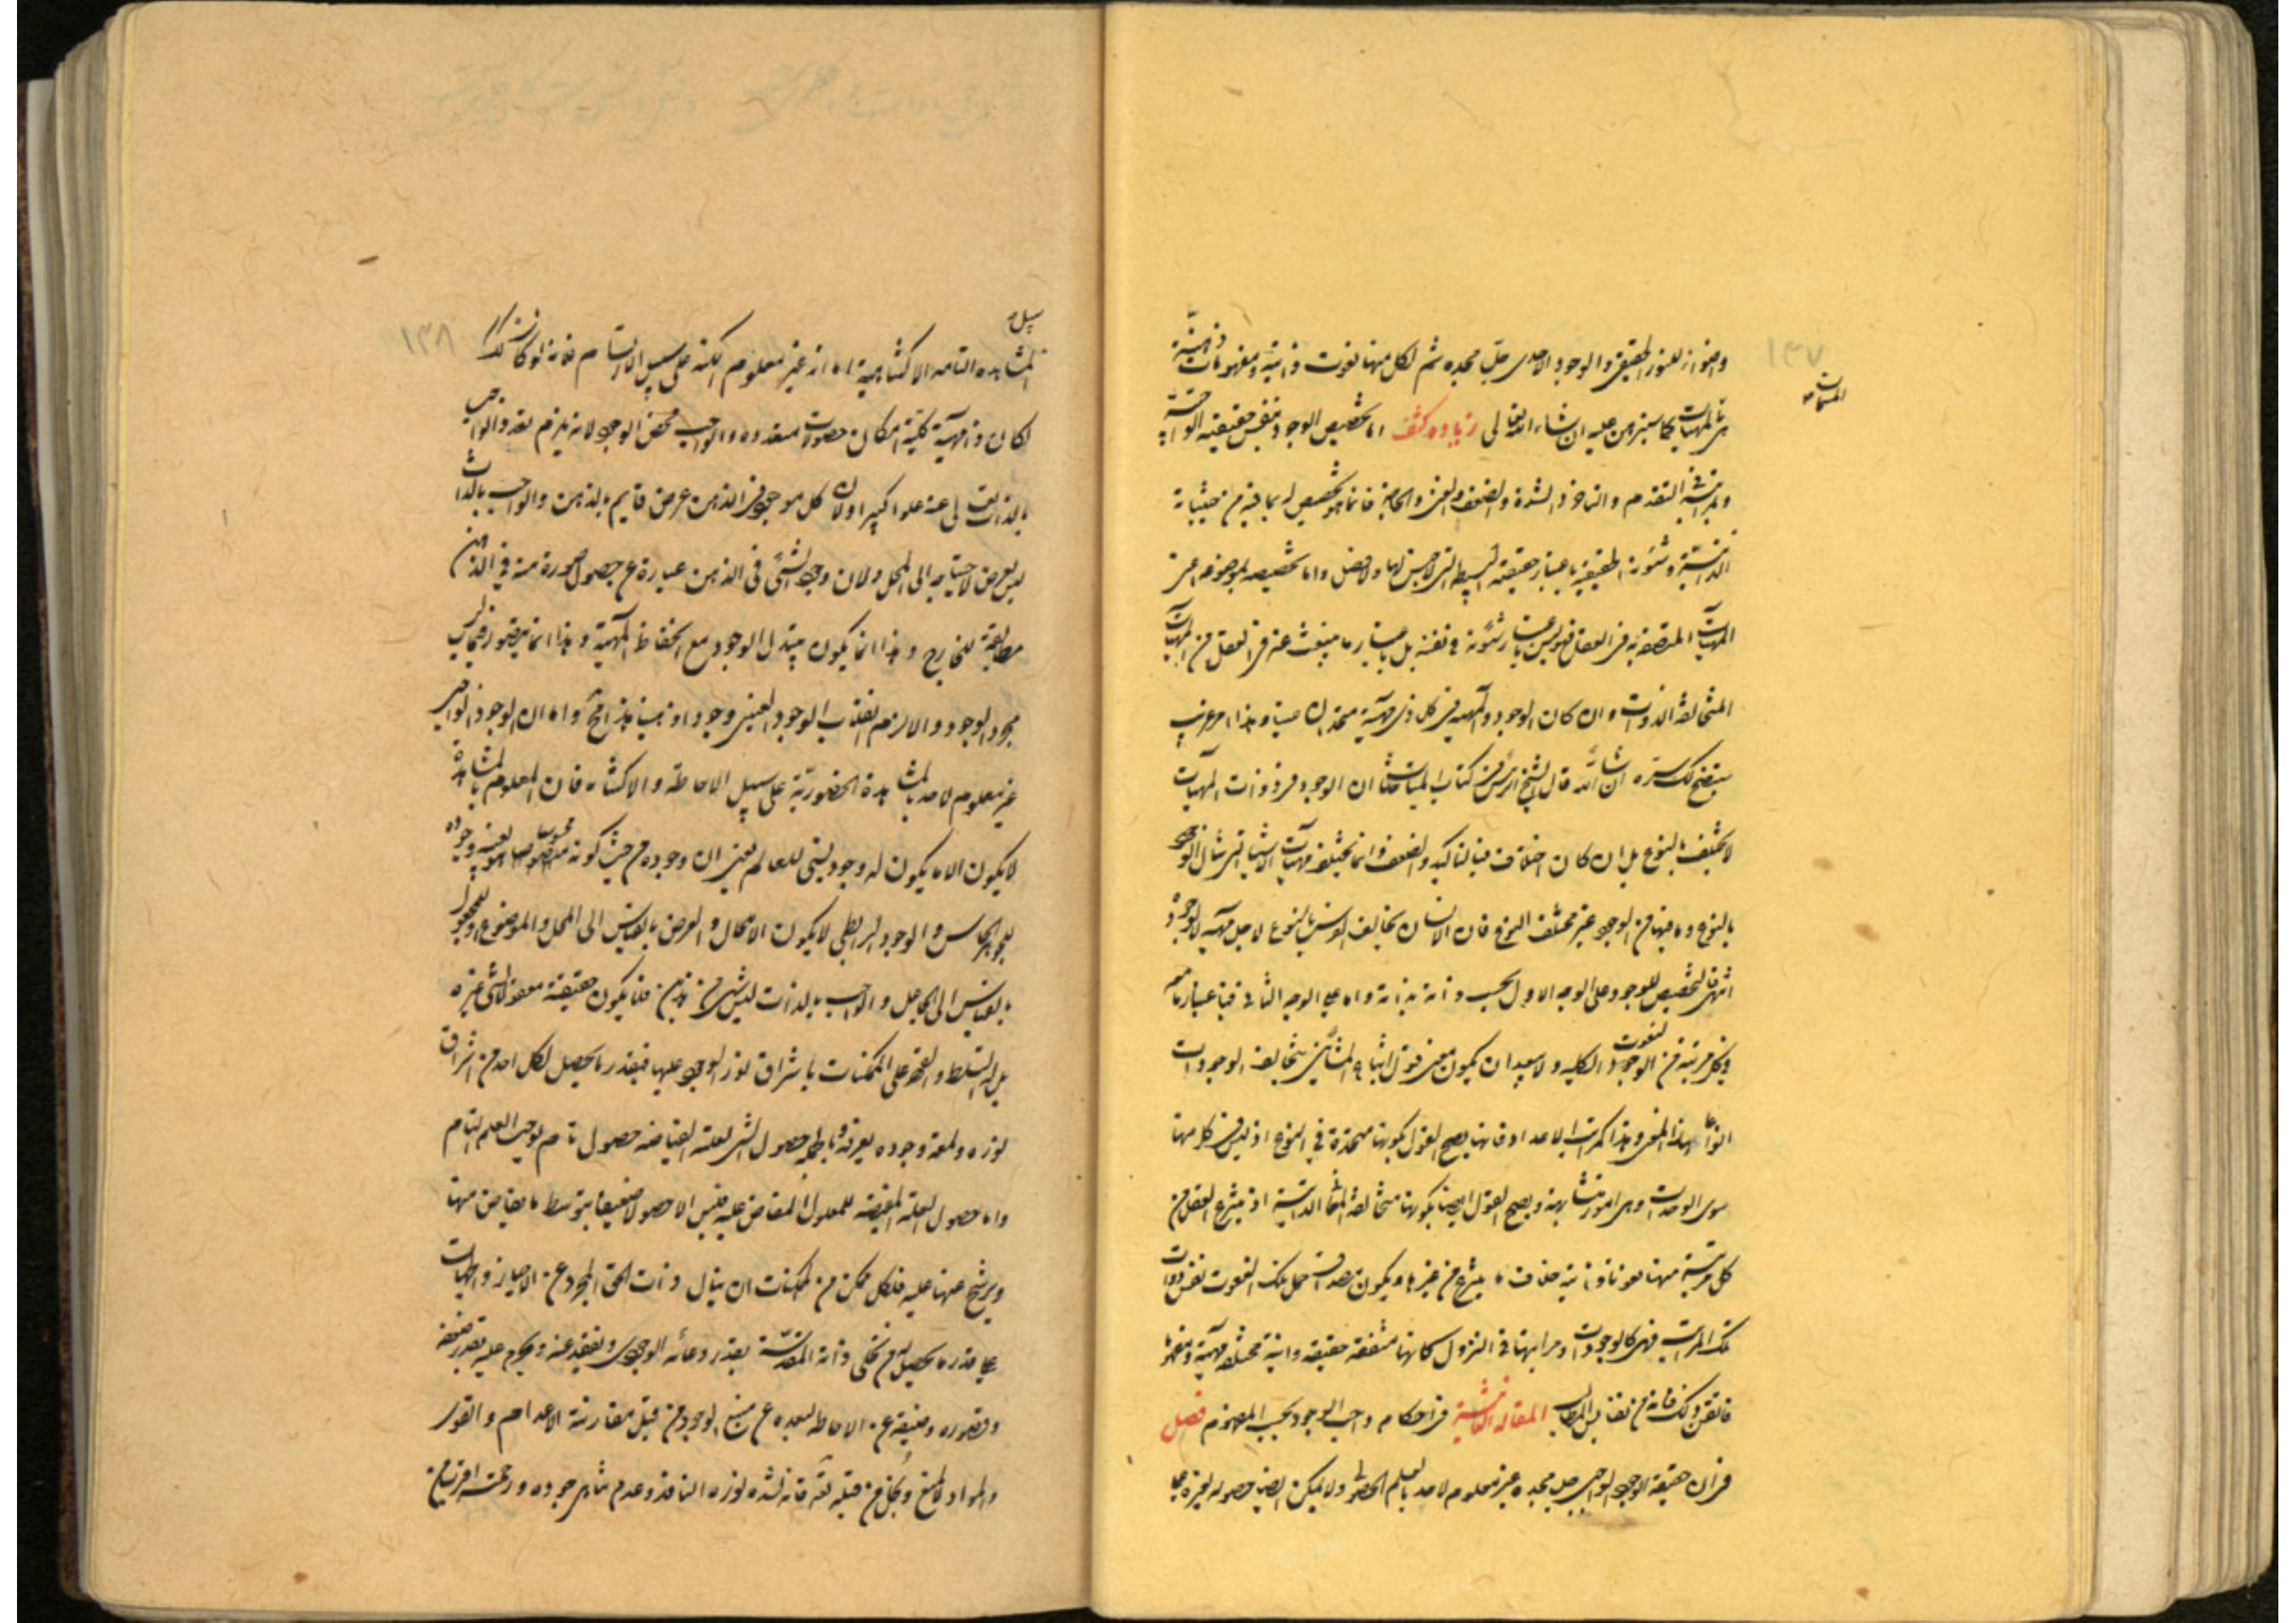 ١٣٧
واضواء للنور الحقيقي والوجود الاحدى جل مجده ثم لكل منها نعوت ذاتية ومفهومات ذهنية
المسماة
هى بالمهيات كما سنبرهن عليه ان شاء الله تعالى زيادة كشف اما تخصيص الوجود بنفس حقيقته الواجبية
وبمراتبه فى التقدم والتاخر والشدة والضعف والغنى والحاجة فانما هو تخصيص له بما فيه من حيثياته
الذاتية وشئونه الحقيقية باعتبار حقيقته البسيطة التى لا جنس لها ولا فصل واما تخصيصه بموضوعه اعنى
المهيات المتصفة به فى العقل فهو ليس باعتبار شئونه فى نفسه بل باعتبار ما ينبعث عنه فى العقل من المهيات
المتخالفة الذوات وان كان الوجود والمهية فى كل ذى مهية متحدان عينا وهذا امر غريب
سيتضح لك سره ان شاء الله قال الشيخ الرئيس فى كتاب المباحثات ان الوجود فى ذوات المهيات
لا يختلف بالنوع بل ان كان اختلاف فبالتاكيد والضعف وانما تختلف مهيات الاشياء التى تنال الوجود
بالنوع وما فيها من الوجود غير مختلف النوع فان الانسان يخالف الفرس بالنوع لاجل مهيته لا وجوده
انتهى فالتخصيص للوجود على الوجه الاول بحسب ذاته بذاته واما على الوجه الثانى فباعتبار ما معه
فى كل مرتبة من النعوت الكلية ولا يبعد ان يكون معنى قول اتباع المشائين بتخالف الوجودات
انواعا هذا المعنى وهذا كمراتب الاعداد فانها يصح القول بكونها متحدة فى النوع اذ ليس فى كل منها
سوى الوحدات وهى امور متشابهة ويصح القول ايضا بكونها متخالفة المعانى الذاتية اذ ينتزع العقل من
كل مرتبة منها نعوتا ذاتية خلاف ما ينتزع من غيرها ويكون مصداق حمل تلك النعوت نفس ذوات
تلك المراتب فهى كالوجودات ومراتبها فى النزول كانها متفقة حقيقة وانية مختلفة مهية ومفهوما
فاتقن ذلك فانه من نفايس المطالب المقالة الثانية فى احكام واجب الوجود بحسب المفهوم فصل
فى ان حقيقة الوجود الواجبى جل مجده غير معلوم لاحد بالعلم الحصولى ولا يمكن ايضا حصوله لغيره على
١٣٨
سبيل
المشاهدة التامة الاكتناهية اما انه غير معلوم الكنه على سبيل الارتسام فانه لو كان كذلك
لكان ذا مهية كلية امكان حصولات متعددة والواجب محض الوجود لانه يلزم تعدد الواجب
بالذات تعالى عنه علوا كبيرا ولان كل موجود فى الذهن عرض قايم بالذهن والواجب بالذات
ليس بعرض لاحتياجه الى المحل ولان وجود الشئ فى الذهن عبارة عن حصول صورة منه فى الذهن
مطابقة للخارج وهذا انما يكون بتبدل الوجود مع انحفاظ المهية وهذا انما يتصور فيما ليس
مجرد الوجود والا لزم انقلاب الوجود العينى وجودا ذهنيا هذا مح واما ان الوجود الواجبى
غير معلوم لاحد بالمشاهدة الحضورية على سبيل الاحاطة والاكتناه فان المعلوم بالمشاهدة
لا يكون الا ما يكون له وجود نسبى للعالم يعنى ان وجوده من حيث كونه محسوسا هو بعينه وجوده
للجوهر الحاس والوجود الرابطى لا يكون الا للحال والعرض بالقياس الى المحل والموضوع او للمعلول
بالقياس الى الجاعل والواجب بالذات ليس بشئ من هذين فلا يكون حقيقته معقولا لشئ غيره
بل له التسلط والقهر على الممكنات باشراق نور الوجود عليها فبقدر ما يحصل لكل احد من اشراق
نوره ولمعة وجوده يعرفه وبالجملة حصول الشئ لعلته الفياضة حصول تام يوجب العلم التام
واما حصول العلة المفيضة للمعلول المفاض عليه فليس الا حصولا ضعيفا بتوسط ما يفاض منها
ويرشح عنها عليه فلكل ممكن من الممكنات ان ينال ذات الحق المجرد عن الاحياز والجهات
على قدر ما يحصل له من تجلى ذاته المقدسة بقدر وعائه الوجودى ويفقد عنه ويحرم عليه بقدر ضعفه
وقصوره وضيقه عن الاحاطة لبعده عن منبع الوجود من قبل مقارنة الاعدام والقوى
والمواد لا لمنع وبخل من قبله تعه فانه لشدة نوره النافذ وعدم تناهى جوده ورحمته اقرب من